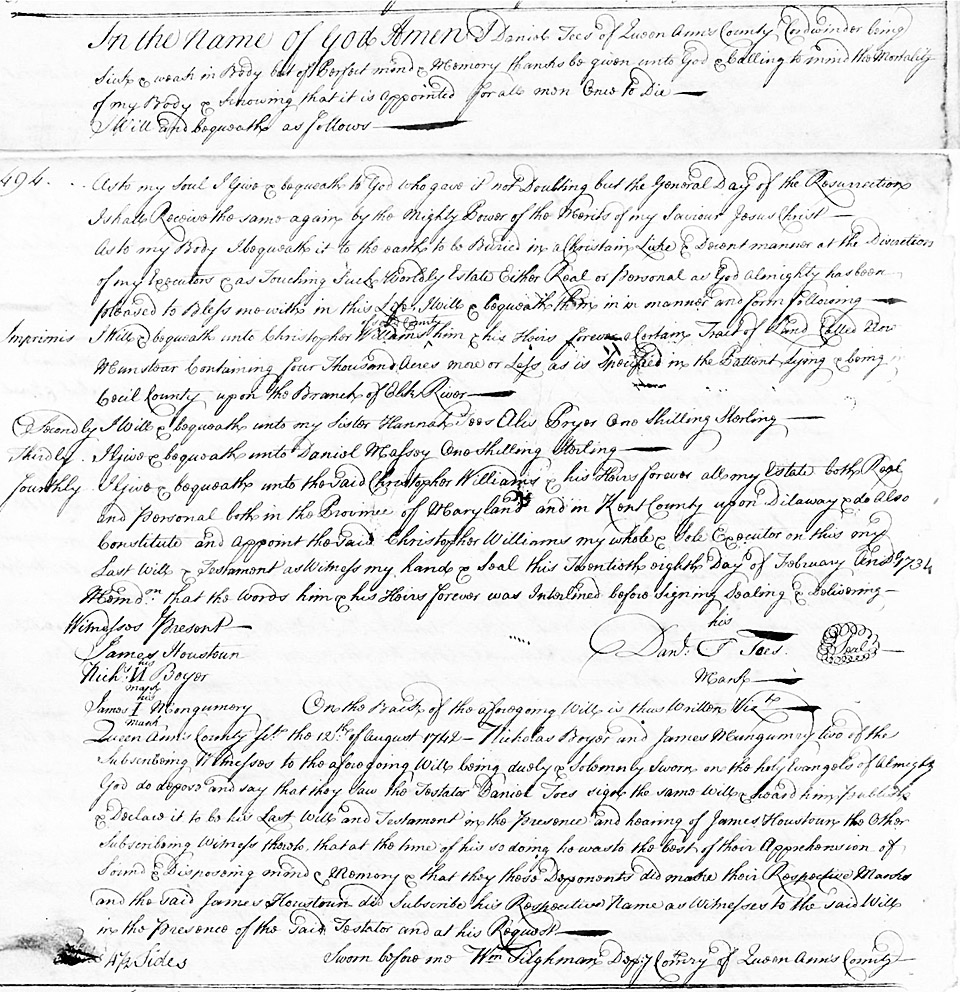 In the Name of God Amen I Daniel Toes of Queen Ann's County Cordwinder being
Sick & weak in Body but of Perfect mind & Memory thanks be given unto God & Calling to mind the Mortality
of my Body & Knowing that it is Appointed for all men Once to Die
I Will and bequeath as follows
494. As to my Soul I Give & bequeath to God who gave it not Doubting but the General Day of the Resurrection
I shall Receive the same again by the Mighty Power of the Merits of my Saviour Jesus Christ
As to my Body I bequeath it to the earth to be Buried in a Christain Like & Decent manner at the Discretion
of my Executors & as Touching Such Worldly Estate Either Real or Personal as God Almighty has been
pleased to Bless me with in this Life, I Will & bequeath them in in manner and form following
Imprimis I Will & bequeath unto Christopher Williams him & his Heirs forever a Certain Tract of Land Called New
Munster Containing four Thousand Acres more or Less as is Specified in the Pattent Lying & being
Cecil County upon the Branch of Elk River
Secondly I Will & bequeath unto my Sister Hannah Toes Alis Pryer One Shilling Sterling
Thirdly I Give & bequeath unto Daniel Massey One Shilling Sterling
fourthly I Give & bequeath unto the Said Christopher Williams & his Heirs forever all my Estate both Real
and Personal both in the Province of Maryland and in Kent County upon Dilaway & do Also
Constitute and Appoint the Said Christopher Williams my whole & Sole Executor on this my
Last Will & Testament as Witness my hand & Seal this Twentieth eighth Day of February 1734
Memdm that the Words him & his Heirs forever was Interlined before Signing Sealing & Delivering
Witnesses Present
his
James Houstoun Danl. T Toes. Seal
his
Nichs. N Boyer Mark
mark
his
James I Mongumery On the Back of the aforegoing Will is thus Written Vizt
mark
Queen Ann's County Sct. the 12th of August 1742 - Nicholas Boyer and James Mungumry two of the
Subscribeing Witnesses to the aforegoing Will being duely & Solemnly Sworn on the holy Evangels of Almighty
God do depose and say that they Saw the Testator Daniel Toes sign the same Will & heard him publish
& Declare it to be his Last Will and Testament in the Presence and hearing of James Houstoun the Other
Subscribeing Witness thereto, that at the time of his so doing he was to the best of their Apprehension of
Sound & Disposeing mind & Memory & that they these Deponents did make their Respective Marks
and the said James Houstoun did Subscribe his Respective Name as Witnesses to the Said Will
in the Presence of the Said Testator and at his Request
4½ Sides Sworn before me Wm Tilghman Depy Comry of Queen Ann's County